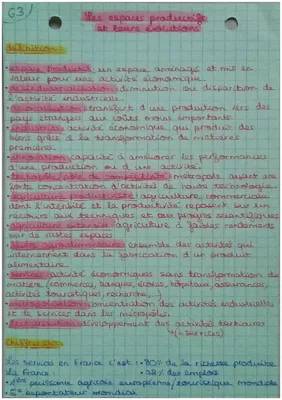 G3/
Les espaces productifs
et leurs évolutions
Définitions
• espace productif: un espace aménagé et mis en
valeur pour une activité économique.
• désindustrialisation: diminution ou disparition de
l'activité industrielle.
• délocalisation: transfert d'une production vers des
pays étrangers aux coûts moins importants.
• industrie: activité économique qui produit des
biens grâce à la transformation de matières
premières.
• innovation: capacité d'améliorer les performances
d'une production ou d'une activité.
• technopôle, pôle de compétitivité: métropole ayant une
forte concentration d'activité de haute technologie.
• agriculture productiviste: agriculture, commerciale
dont l'intensité et la productivité reposent sur un
recours aux techniques et aux progrès scientifiques
• agriculture extensive: agriculture à faibles rendements
sur de vastes espaces
• ensemble des activités qui
interviennent dans la fabrication d'un produit
alimentaire.
• services: activité économiques sans transformation de
matière (commerces, banques, écoles, hôpitaux, assurances,
activité touristique, recherche,...)
• concentration des activités industrielles
et de services dans les métropoles.
• développement des activités tertiaires
(= services)
Chiffres clés
Les services en France c'est: • 80% de la richesse produite
La France: • 78% des emplois
• 1ère puissance agricole européenne/touristique mondiale
• 6e exportateur mondial